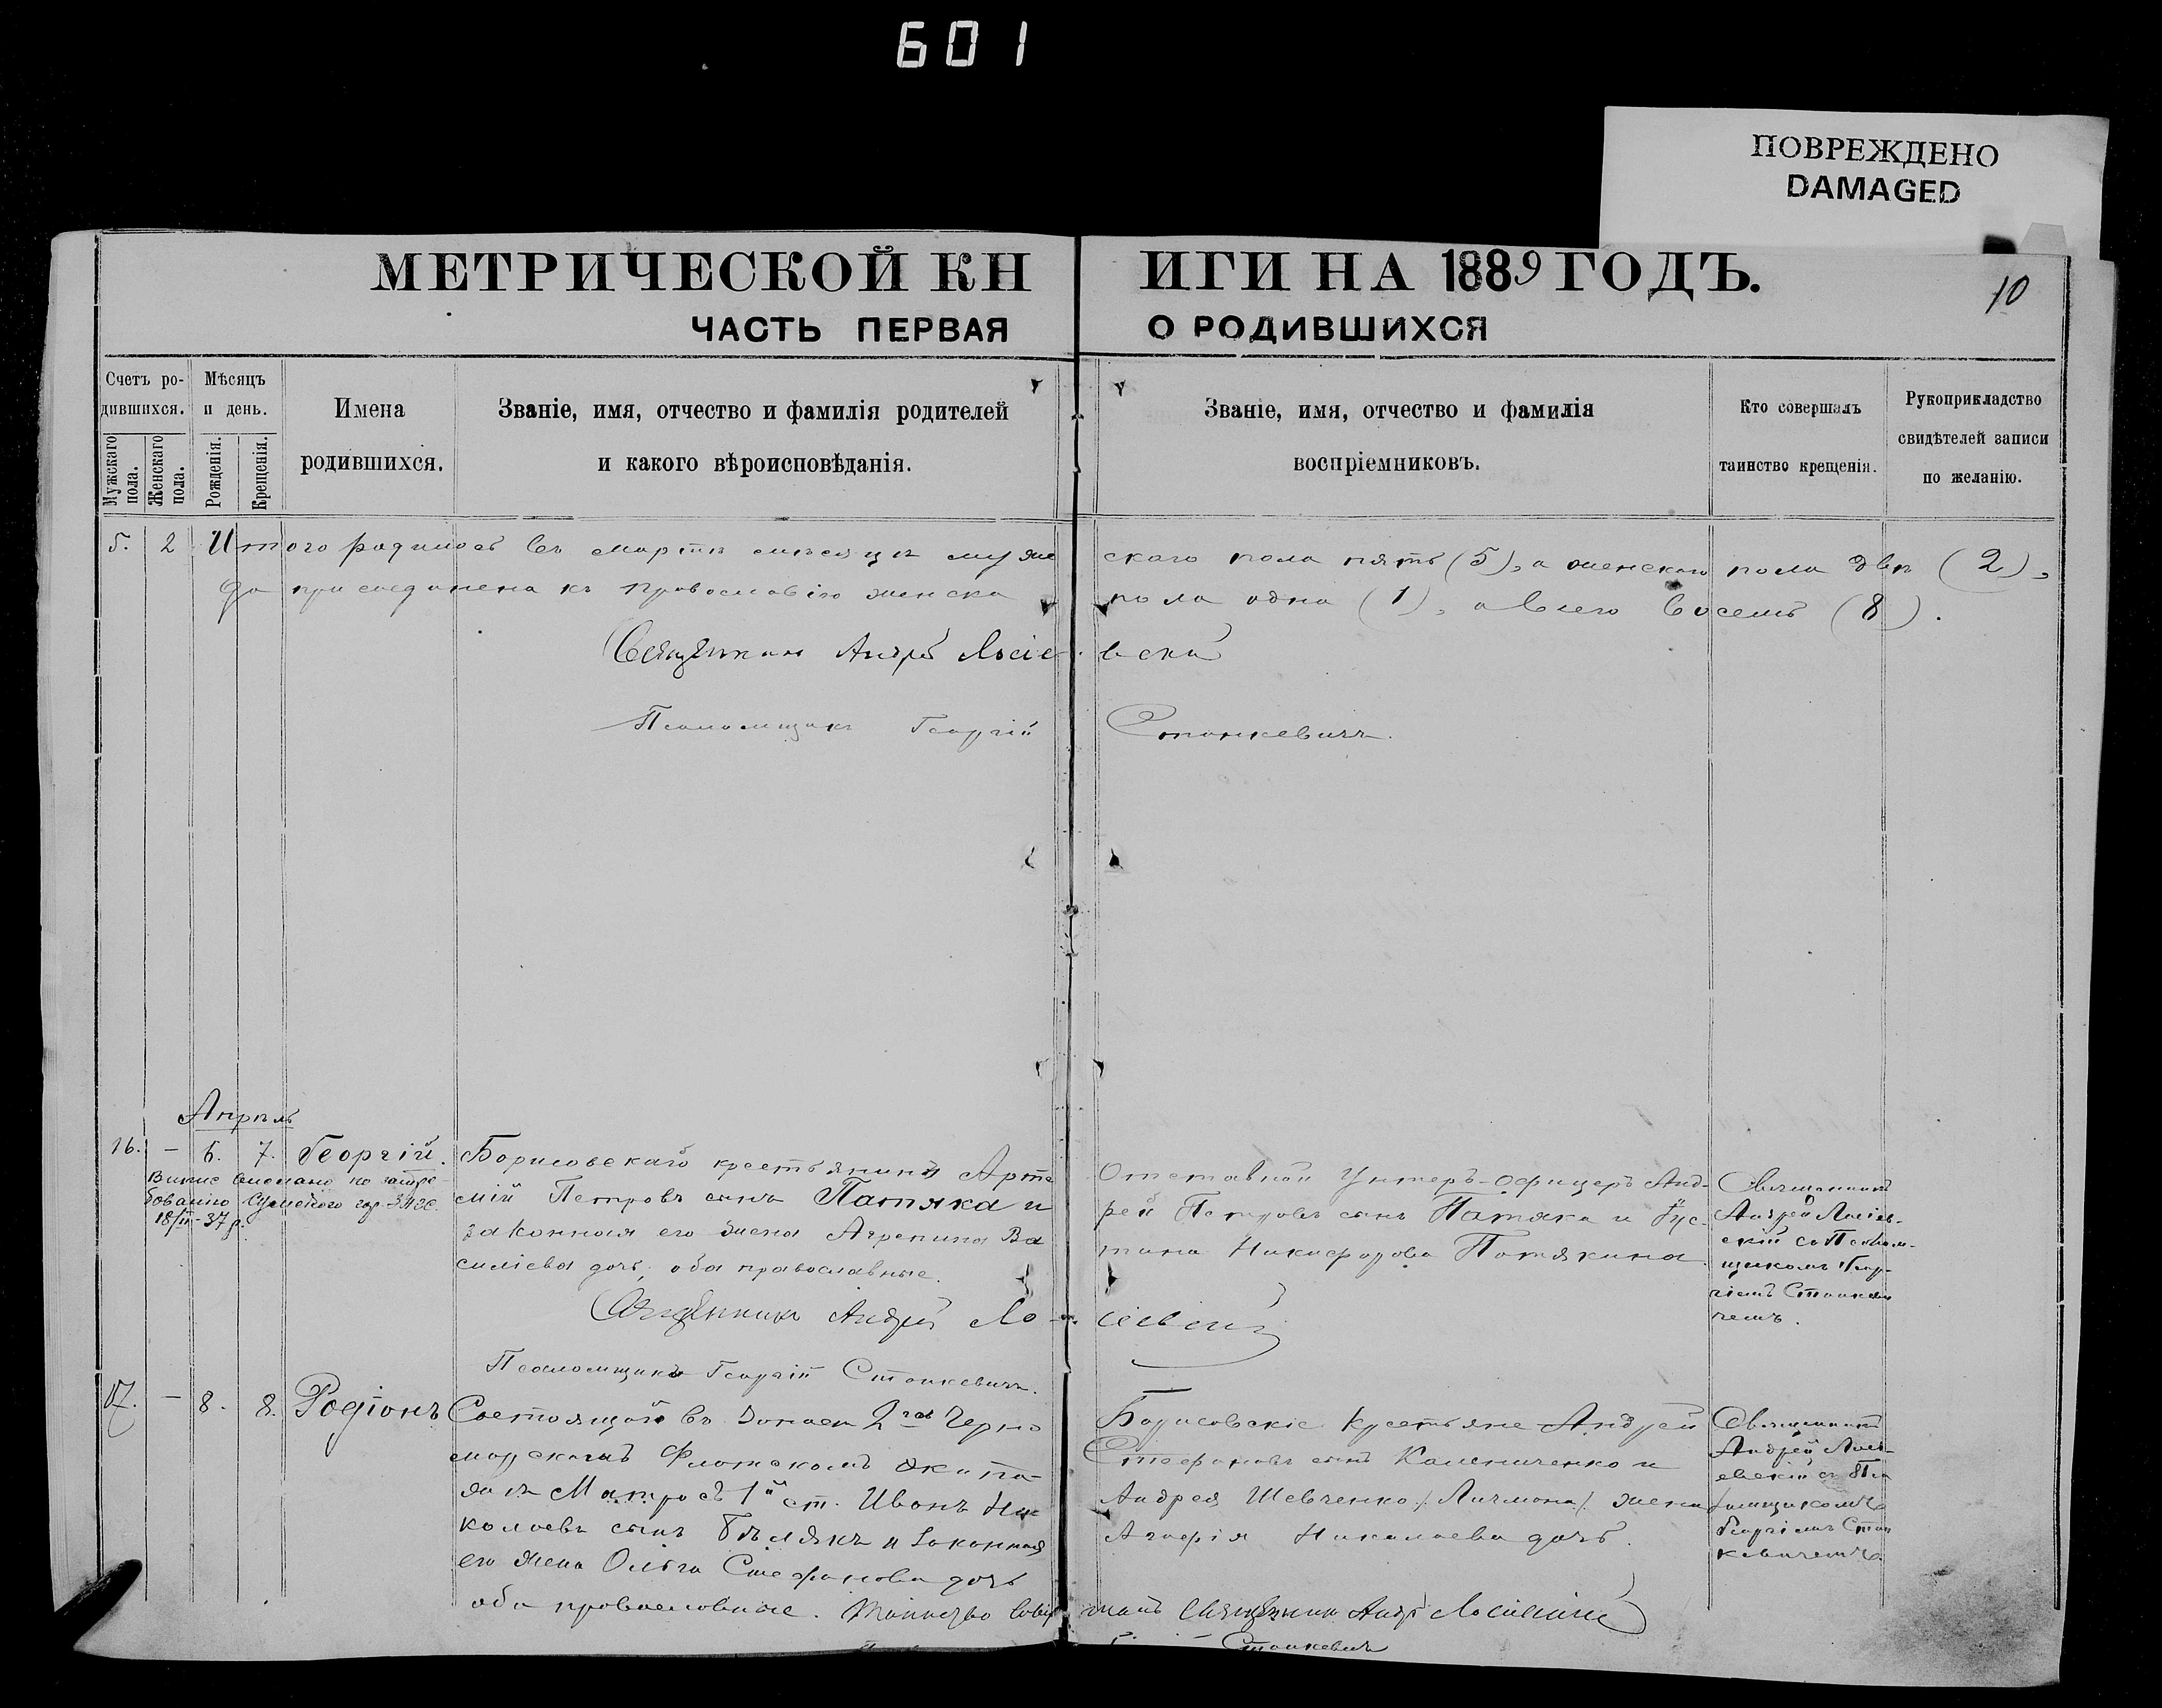 601
ПОВРЕЖДЕНО
DAMAGED
МЕТРИЧЕСКОЙ КНИГИ НА 1889 ГОДЪ.
10
ЧАСТЬ ПЕРВАЯ О РОДИВШИХСЯ
Счетъ ро-
дившихся.
Мужскаго пола.
Женскаго пола.
Мѣсяцъ
и день.
Рожденія.
Крещенія.
Имена
родившихся.
Званіе, имя, отчество и фамилія родителей
и какого вѣроисповѣданія.
Званіе, имя, отчество и фамилія
воспріемниковъ.
Кто совершалъ
таинство крещенія.
Рукоприкладство
свидѣтелей записи
по желанію.
5. 2 Итого родилось въ мартѣ мѣсяцѣ мужескаго пола пять (5), а женскаго пола двѣ (2),
да присоединена къ православію женска пола одна (1), а всего восемь (8).
Священник Андрей Лосіевскій
Псаломщикъ Георгій Станкевичъ.
Апрѣль
16. - 6. 7. Георгій.
18/II-37 р.
Борисовскаго крестьянинъ Арте
мій Петровъ сынъ Патяка и
законная его жена Агрепина Ва
силіева дочь, оба православные.
Отставной Унтеръ-офицеръ Анд-
рей Петровъ сынъ Патяка и Іус-
тина Никифорова Патякина.
Священникъ
Андрей Лосіев-
скій съ Псалом-
щикомъ Геор-
гіемъ Станкеви
чемъ.
Священникъ Андрей Лосіевскій
Псаломщикъ Георгій Станкевичъ.
17. - 8. 8. Родіонъ
Состоящаго въ запасѣ 2го Черно
морскагъ Флотскомъ экипа
жѣ Матросъ 1й ст. Иванъ Ни
колаевъ сынъ Бѣлякъ и законная
его жена Ольга Стефанова дочь
оба православные.
Борисовскіе крестьяне Андрей
Стефановъ сынъ Калениченко и
Андрея Шевченко /Личмона/ жена
Агафія Николаева дочь.
Священникъ
Андрей Лосі-
евскій съ Пса
ломщикомъ
Георгіемъ Стан
кевичемъ.
Таинство совершалъ Священник Андрей Лосіевскій
Станкевичъ